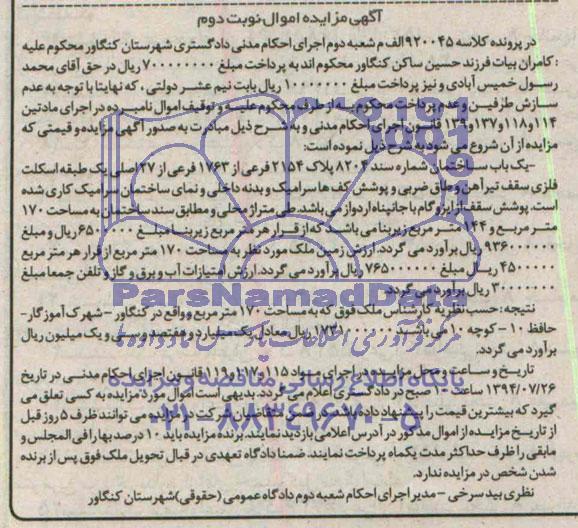 آگهی مزایده اموال نوبت دوم
در پرونده کلاسه ۹۲۰۰۴۵ الف م شعبه دوم اجرای احکام مدنی دادگستری شهرستان کنگاور محکوم علیه
: کامران بیات فرزند حسین ساکن کنگاور محکوم اند به پرداخت مبلغ ۷۰۰۰۰۰۰۰۰ ریال در حق آقای محمد
رسول خمیس آبادی و نیز پرداخت مبلغ ۱۰۰۰۰۰۰۰ ریال بابت نیم عشر دولتی ، که نهایتا با توجه به عدم
سازش طرفین و عدم پرداخت محکوم به از طرف محکوم علیه و توقیف اموال نامبرده در اجرای مادتین
۱۱۴و۱۱۸و۱۳۷و۱۳۹ قانون اجرای احکام مدنی و به شرح ذیل مبادرت به صدور آگهی مزایده و قیمتی که
مزایده از آن شروع می شود به شرح ذیل نموده است:
-یک باب ساختمان شماره سند ۸۲۰۴ پلاک ۲۱۵۴ فرعی از ۱۷۶۳ فرعی از ۲۷ اصلی یک طبقه اسکلت
فلزی سقف تیرآهن و طاق ضربی و پوشش کف ها سرامیک و بدنه داخلی و نمای ساختمان سرامیک کاری شده
است. پوشش سقف از ایزوگام با جانپناه اردواز می باشد. طی متراژ محلی و مطابق سند ساختمان به مساحت ۱۷۰
متر مربع و ۱۴۴ متر مربع زیربنا می باشد که از قرار هر متر مربع زیربنا مبلغ ۶۵۰۰۰۰۰ ریال و مبلغ
۹۳۶۰۰۰۰۰۰ ریال برآورد می گردد. ارزش زمین ملک مورد نظر به مساحت ۱۷۰ متر مربع از قرار هر متر مربع
۴۵۰۰۰۰۰ ریال مبلغ ۷۶۵۰۰۰۰۰۰ ریال برآورد می گردد. ارزش امتیازات آب و برق و گاز و تلفن جمعا مبلغ
۳۰۰۰۰۰۰۰ ریال برآورد می گردد.
نتیجه: حسب نظریه کارشناس ملک فوق که به مساحت ۱۷۰ متر مربع و واقع در کنگاور – شهرک آموزگار-
حافظ ۱۰ – کوچه ۱۰ می باشد ۱۷۳۱۰۰۰۰۰۰ ریال معادل یک میلیارد و هفتصد و سی و یک میلیون ریال
برآورد می گردد.
تاریخ و ساعت و محل مزایده در اجرای مواد ۱۱۵و۱۱۷و۱۱۹ قانون اجرای احکام مدنی در تاریخ
۱۳۹۴/۰۷/۲۶ ساعت ۱۰ صبح در دادگستری اعلام می گردد. بدیهی است اموال مورد مزایده به کسی تعلق می
گیرد که بیشترین قیمت را پیشنهاد داده باشد. متقاضیان شرکت در مزایده می توانند ظرف ۵ روز قبل
از تاریخ مزایده از اموال مذکور در آدرس اعلامی بازدید نمایند. برنده مزایده باید ۱۰ درصد بها را فی المجلس و
مابقی را ظرف حداکثر مدت یکماه پرداخت نمایند. ضمنا دادگاه تعهدی در قبال تحویل ملک فوق پس از برنده
شدن شخص در مزایده ندارد.
نظری بید سرخی – مدیر اجرای احکام شعبه دوم دادگاه عمومی (حقوقی) شهرستان کنگاور
ParsNamadData
پایگاه اطلاع رسانی مناقصه و مزایده
۰۲۱-۸۸۳۴۹۶۷۰-۵